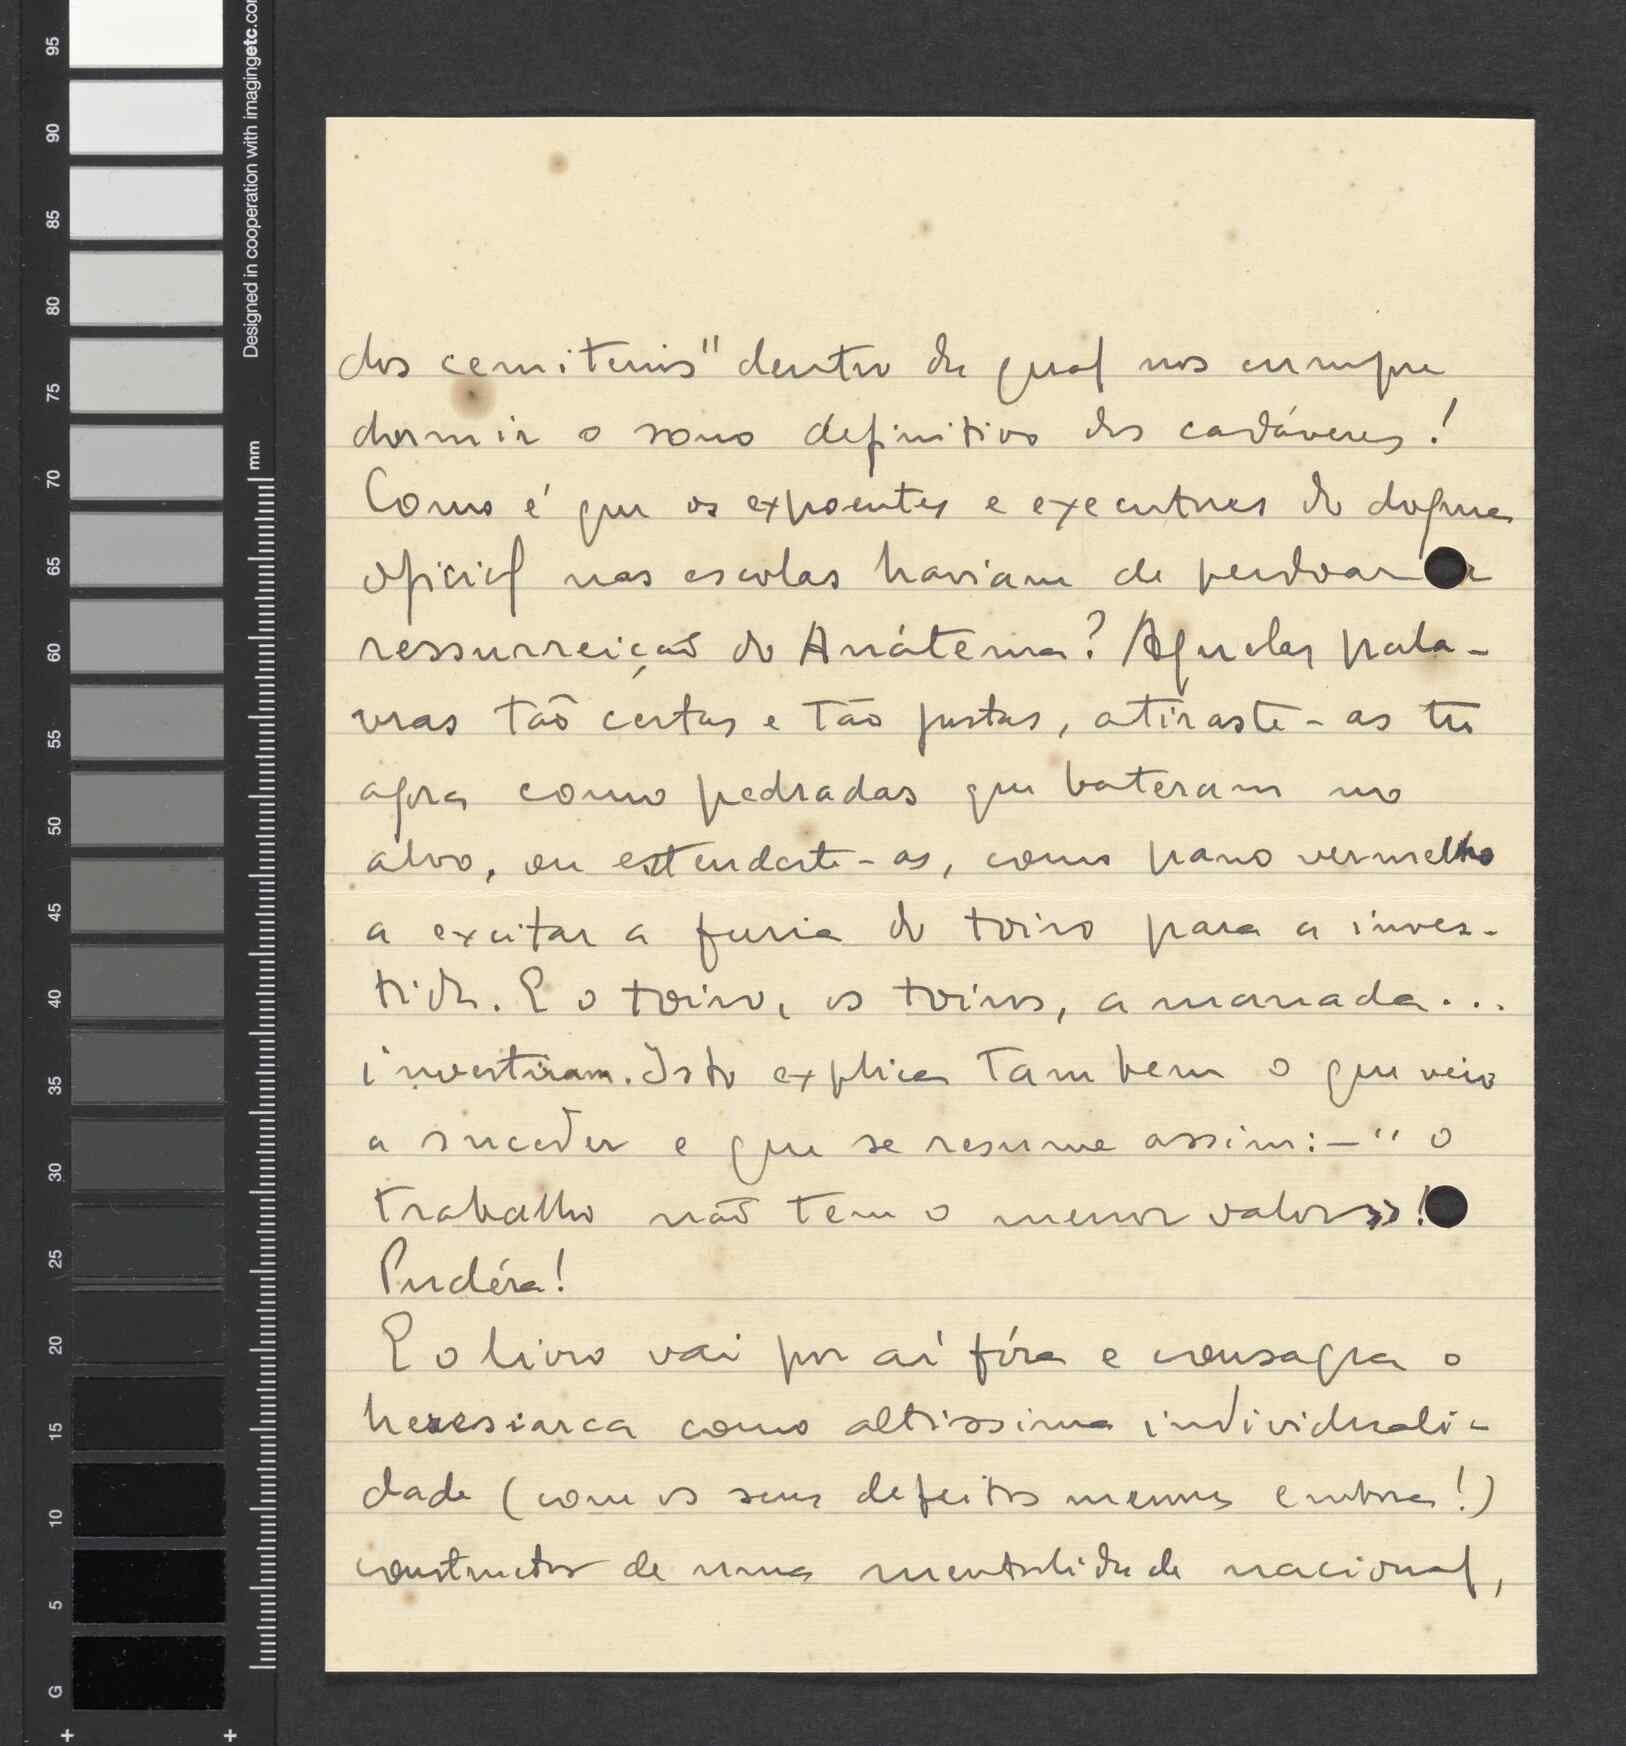 95
90
85
80
75
70
65
60
55
50
45
40
35
30
25
20
15
10
5
G
Designed in cooperation with imagingetc.com
mm
dos cemiterios" dentro da qual nos cumpre
dormir o sono definitivo dos cadáveres!
Como é que os expoentes e executores do dogma
oficial nas escolas haviam de perdoar a
ressurreição do Anátema? Aquelas pala-
vras tão certas e tão justas, atiraste-as tu
agora como pedradas que bateram no
alvo, ou estendeste-as, como pano vermelho
a excitar a furia do toiro para a inves-
tida. E o toiro, os toiros, a manada...
investiram. Isto explica tambem o que veio
a suceder e que se resume assim: - "o
trabalho não tem o menor valor»!
Pudéra!
E o livro vai por aí fóra e consagra o
heresiarca como altissima individuali-
dade (com os seus defeitos menores embora!)
constructor de uma mentalidade nacional,